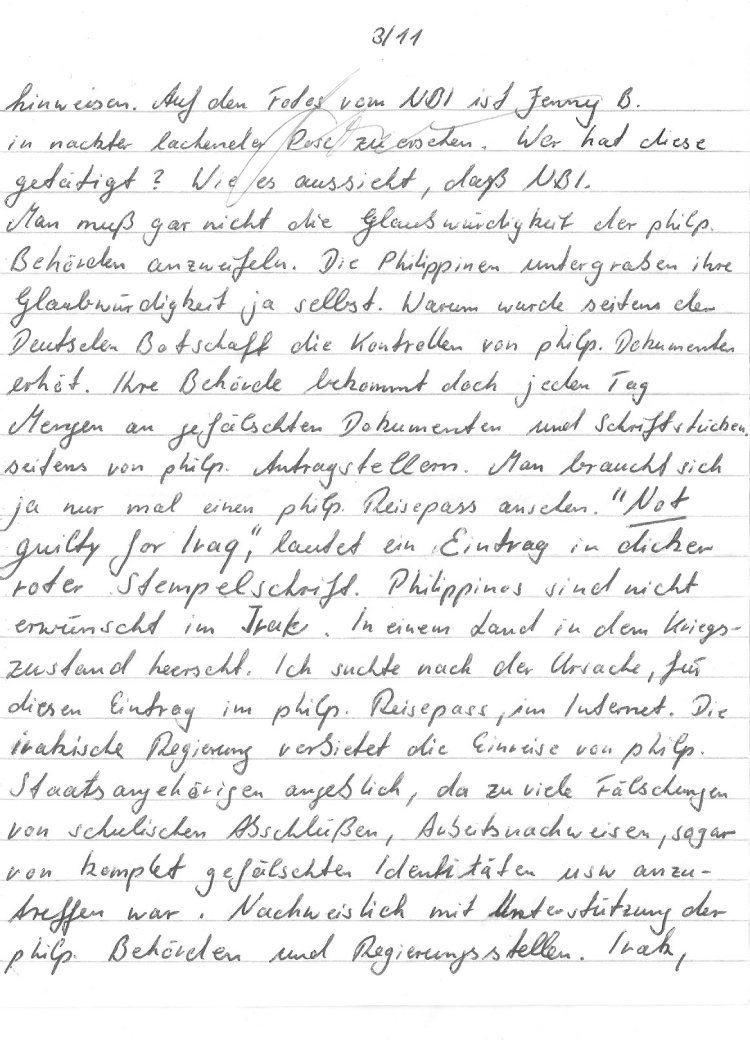 3/11
hinweisen. Auf den Fotos vom NBI ist Jenny B.
in nackter lachender Pose zu ersehen. Wer hat diese
getätigt? Wie es aussieht, daß NBI.
Man muß gar nicht die Glaubwürdigkeit der philp.
Behörden anzweifeln. Die Philippinen untergraben ihre
Glaubwürdigkeit ja selbst. Warum wurde seitens der
Deutschen Botschaft die Kontrollen von philp. Dokumenten
erhöt. Ihre Behörde bekommt doch jeden Tag
Mengen an gefälschten Dokumenten und Schriftstücken
seitens von philp. Antragstellern. Man braucht sich
ja nur mal einen philp. Reisepass ansehen. "Not
guilty for Iraq", lautet ein Eintrag in dicker
roter Stempelschrift. Philippinos sind nicht
erwünscht im Irak. In einem Land in dem Kriegs-
zustand heerscht. Ich suchte nach der Ursache, für
diesen Eintrag im philp. Reisepass, im Internet. Die
irakische Regierung verbietet die Einreise von philp.
Staatsangehörigen angeblich, da zu viele Fälschungen
von schulischen Abschlüßen, Arbeitsnachweisen, sogar
von komplet gefälschten Identitäten usw anzu-
treffen war. Nachweislich mit Unterstützung der
philp. Behörden und Regierungsstellen. Irak,